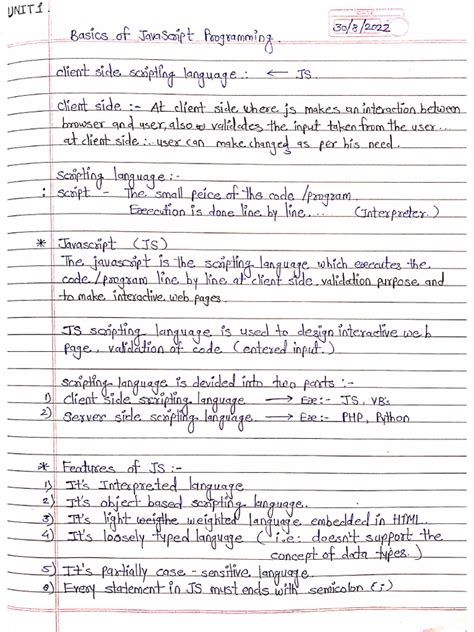 UNIT 1.
DATE
30/8/2022
Basics of JavaScript Programming.
client side scripting language : ← JS.
client side :- At client side where js makes an interaction between
browser and user, also validates the input taken from the user...
at client side :. user can make changed as per his need.
scripting language :-
: script - The small peice of the code / program.
Execution is done line by line..... (Interpreter.)
* Javascript (JS)
The javascript is the scripting language which executes the
code / program line by line at client side, validation purpose and
to make interactive web pages.
JS scripting language is used to design interactive web
page, validation of code (entered input.)
scripting language is devided into two parts :-
1) Client side scripting language → Exe:- JS, VBs
2) Server side scripting language → Exe:- PHP, Python
* Features of JS :-
1) It's Interpreted language
2) It's object based scripting language..
3) It's light weigthe weighted language embedded in HTML.
4) It's loosely typed language (i.e: doesn't support the
concept of data types.)
5) It's partially case-sensitive language.
6) Every statement in JS must ends with semicolon (;)